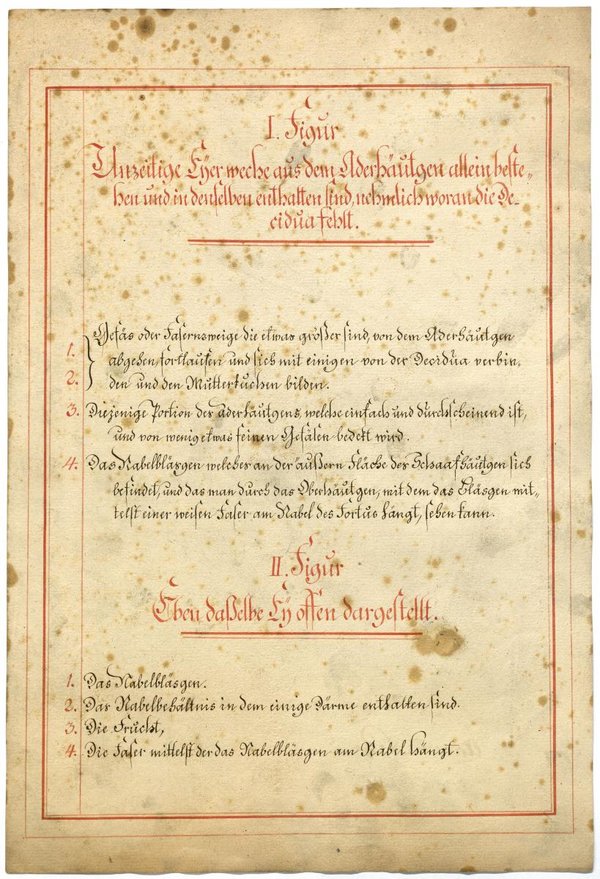 I. Figur
Unzeitige Eyer weche aus dem Aderhäutgen allein beste=
hen und in denselben enthalten sind, nehmlich woran die De=
cidua fehlt.
1. Gefäs oder Fasernzweige die etwas größer sind, von dem Aderhäutgen
abgehen, fortlaufen und sich mit einigen von der Decidua verbin,
2. den und den Mutterkuchen bilden.
3. Diejenige Portion der aderhautgens, welche einfach und durchscheinend ist,
und von wenig etwas feinen Gefäsen bedekt wird.
4. Das Nabelbläsgen welcher an der äußern Fläche des Schaafhäutgen sich
befindet, und das man durch das Oberhäutgen, mit dem das Bläsgen mit=
telst einer weisen Faser am Nabel des Foetus hängt, sehen kann.
II. Figur
Eben daßelbe Ey offen dargestellt.
1. Das Nabelbläsgen.
2. Das Nabelbehältnis in dem einige Därme enthalten sind.
3. Die Frucht,
4. Die Faser mittelst der das Nabelbläsgen am Nabel hängt.